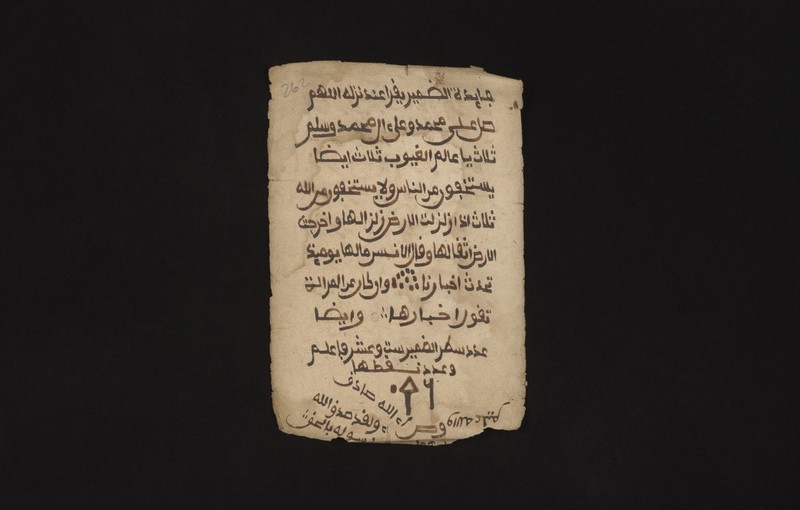 262
الضمير يقرا عند نزله اللهم
صل على محمد وعلى ال محمد وسلم
ثلاث يا عالم الغيوب ثلاث ايضا
يستخفون من الناس ولا يستخفون من الله
ثلاث اذا زلزلت الارض زلزالها واخرجت
الارض اثقالها وقال الانسن مالها يوميذ
تحدث اخبارها وان كان عن المرالة
تقول اخبارها وايضا
عدد سطر الضمير ست وعشر فاعلم
وعدد نقطها
الله صادق
ولقد صدق الله
رسوله بالحق
والله عليم